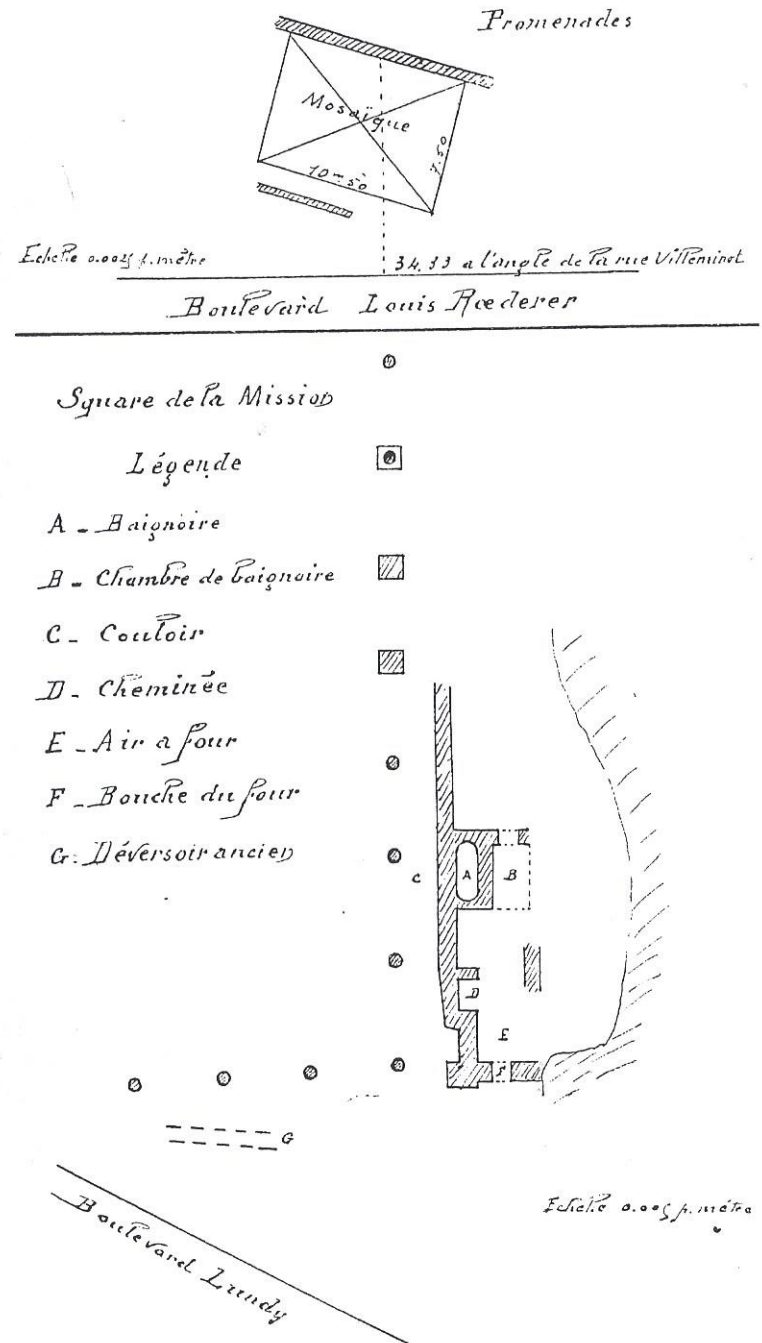 Promenades
Mosaïque
7.50
10m50
Echelle 0.005 p. mètre
34.33 a l'angle de la rue Villeminot
Boulevard Louis Rœderer
Square de la Mission
Légende
A - Baignoire
B - Chambre de baignoire
C - Couloir
D - Cheminée
E - Air a four
F - Bouche du four
G: Déversoir ancien
C
A
B
D
E
F
G
Echelle 0.005 p. mètre
Boulevard Lundy